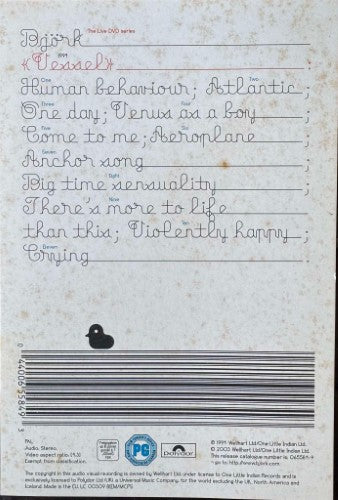 Björk The Live DVD series
«Vessel» 1994 .
One Two
Human behaviour; Atlantic;
Three Four
One day; Venus as a boy ;
Five Six
Come to me; Aeroplane ;
Seven
Anchor song ;
Eight
Big time sensuality ;
Nine
There's more to life
Ten
than this; Violently happy;
Eleven
Crying .
PAL
Audio: Stereo.
Exempt from classification.
PG
polydor
© 1994 Wellhart Ltd/One Little Indian Ltd.
℗ 2003 Wellhart Ltd/One Little Indian Ltd.
This release catalogue number is: 065584-9
The copyright in this audio visual recording is owned by Wellhart Ltd. under license to One Little Indian Records and is exclusively licensed to
Polydor Ltd (UK) a Universal Music Company, for the world excluding the UK, North America and